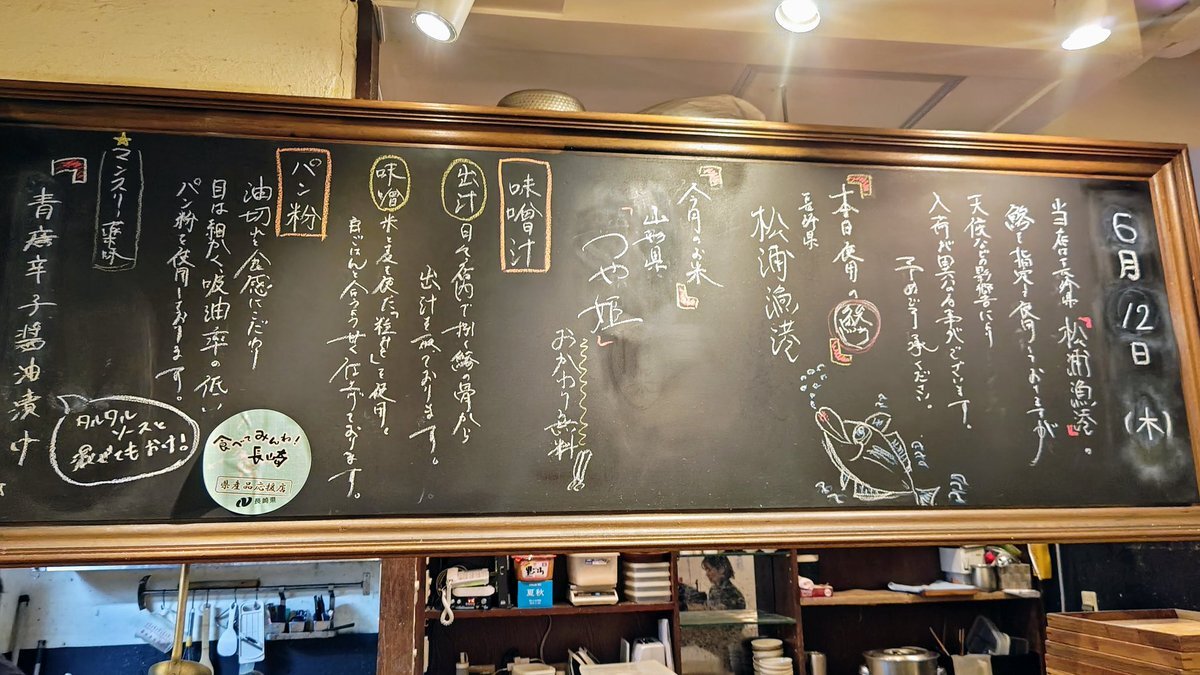 6月12日(木)
当店は長崎県「松浦漁港」の
鯵を指定し使用しておりますが
天候などの影響により
入荷が困難な事がございます。
予めご了承ください。
「本日使用の鯵」
長崎県
松浦漁港
「今月のお米」
山形県
「つや姫」
おかわり無料!!!
味噌汁
出汁 日々店内で捌く鯵の骨から
出汁を取っております。
味噌 米と麦を使た"粒みそ"を使用。
ごはんと合うよう甘く仕立てております。
パン粉
油切れと食感にこだわり
目は細かく吸油率の低い
パン粉を使用しております。
マンスリー薬味
「青唐辛子醤油漬け
タルタル
ソースと
混ぜてもおけ!
食べてみんね!
長崎
県産品応援店
長崎県
夏秋